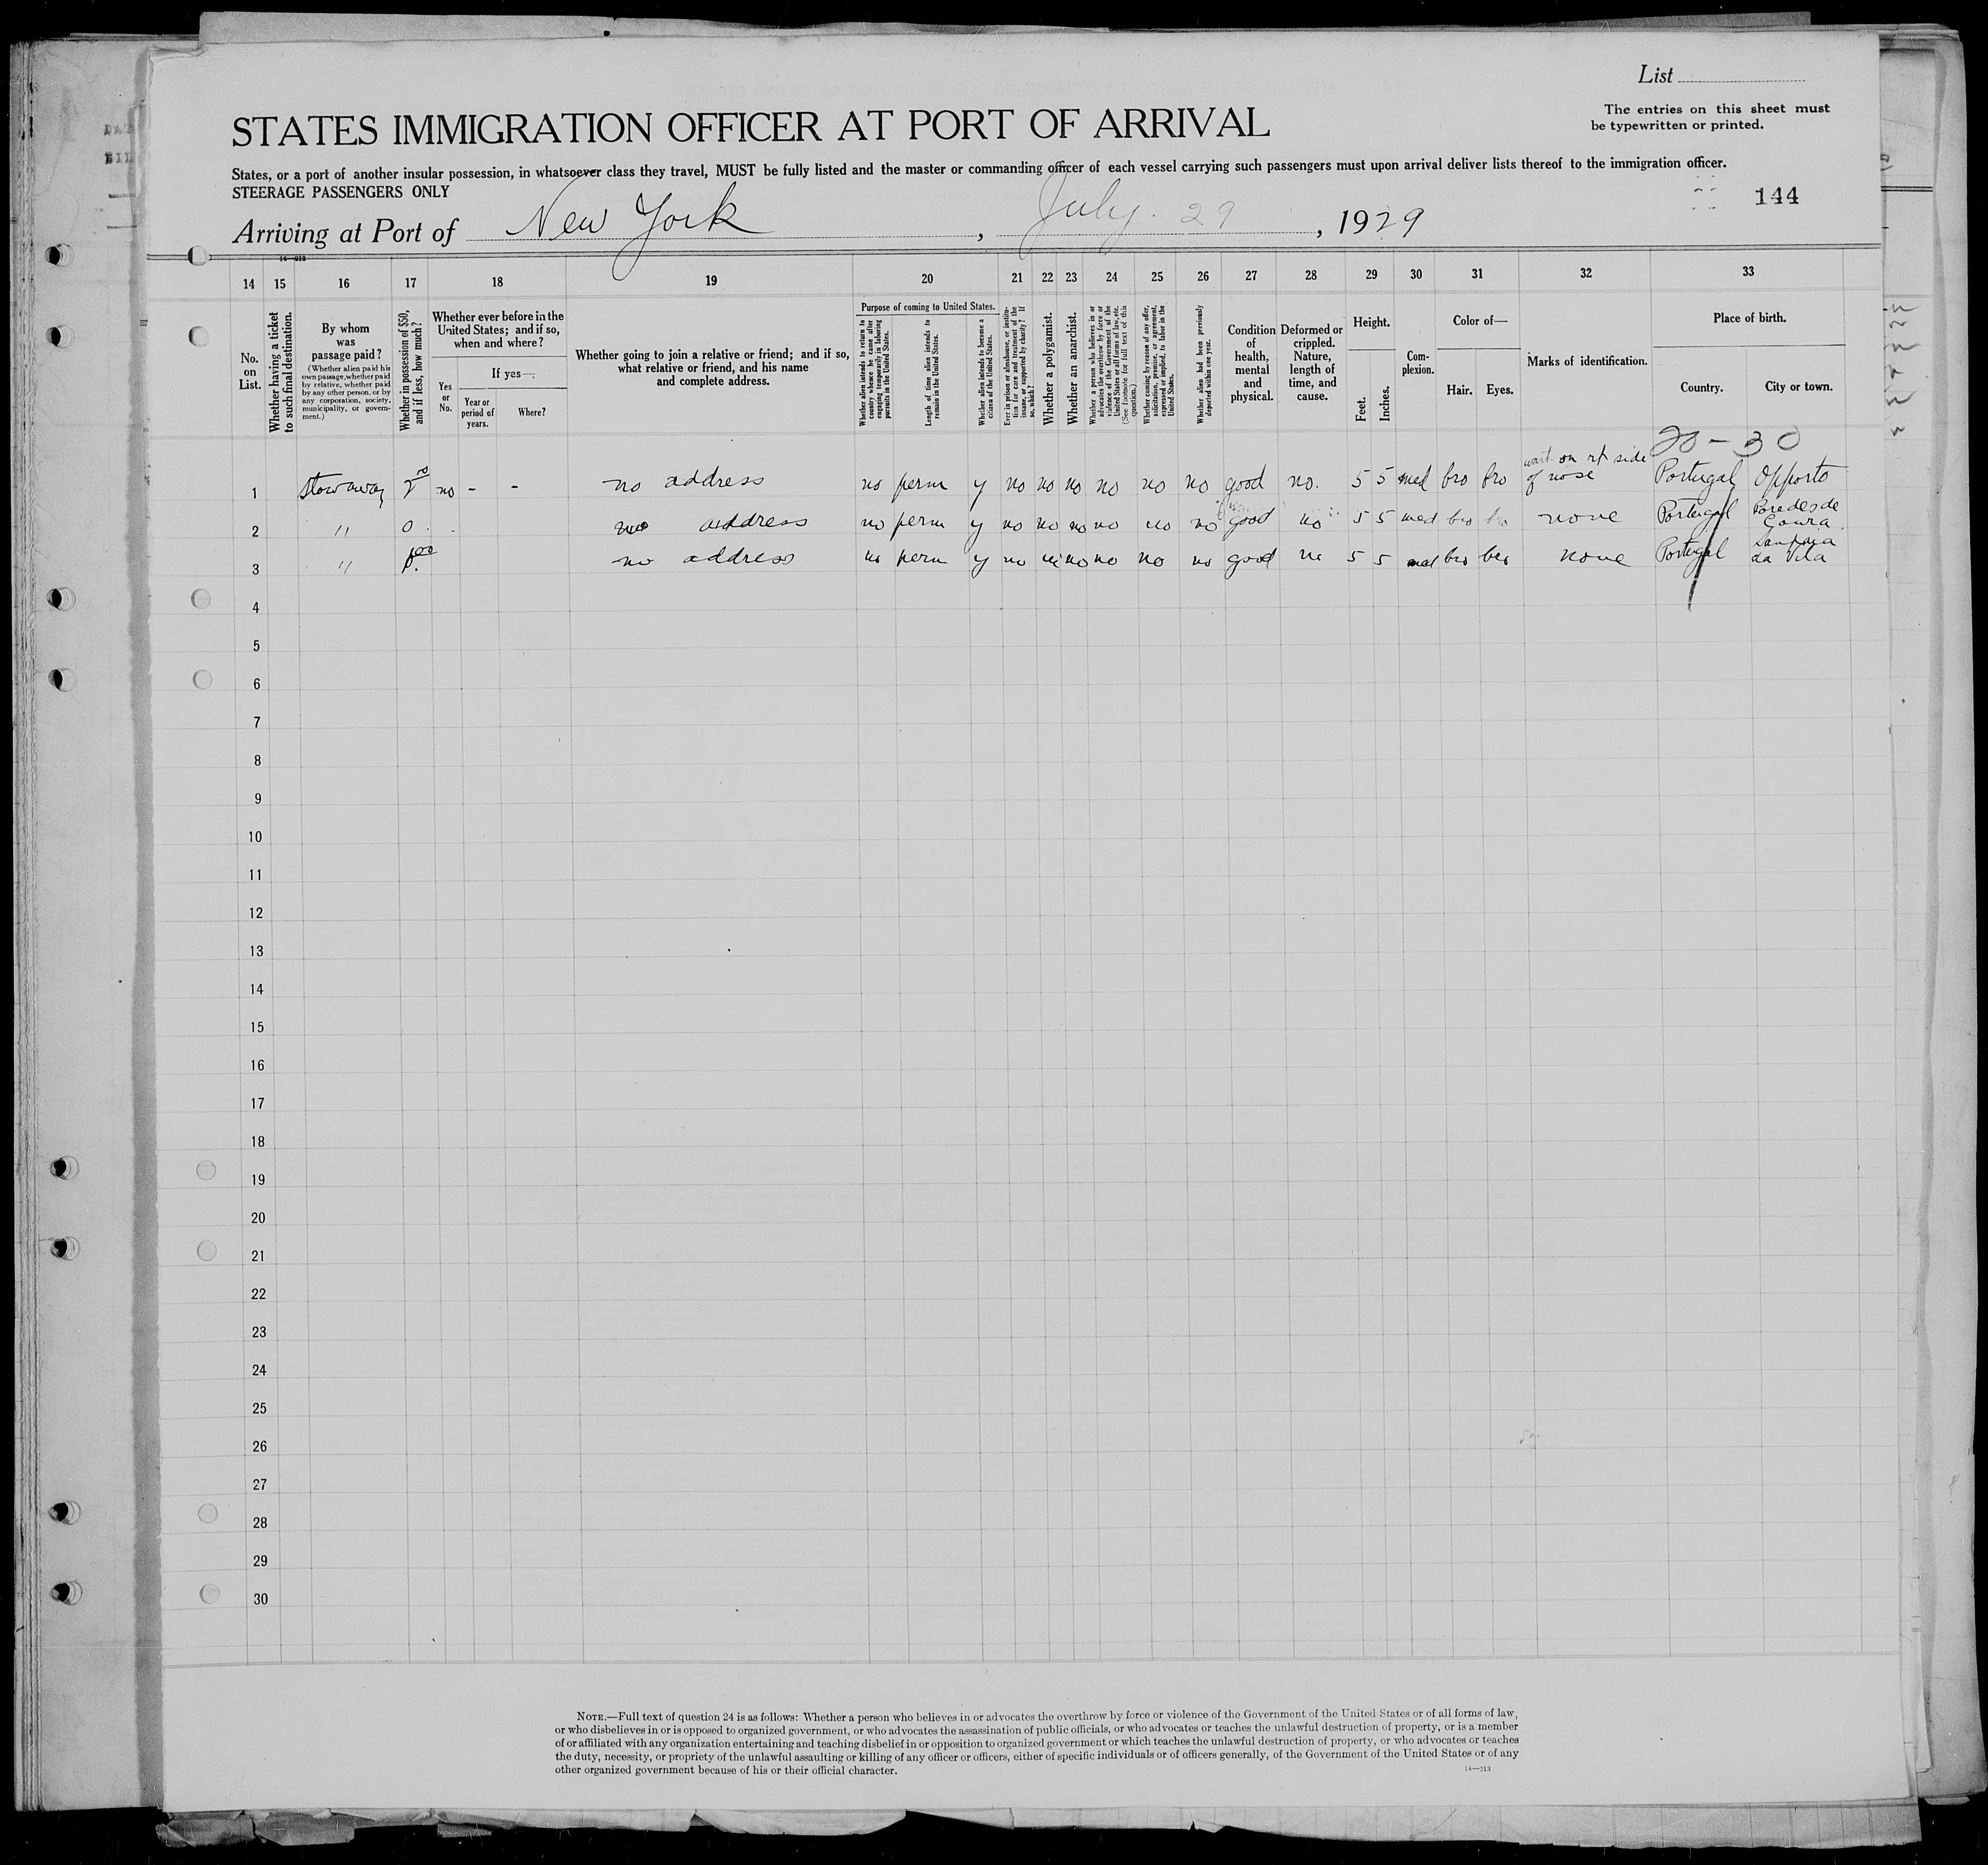 List
The entries on this sheet must
be typewritten or printed.
STATES IMMIGRATION OFFICER AT PORT OF ARRIVAL
States, or a port of another insular possession, in whatsoever class they travel, MUST be fully listed and the master or commanding officer of each vessel carrying such passengers must upon arrival deliver lists thereof to the immigration officer.
STEERAGE PASSENGERS ONLY
144
Arriving at Port of New York, July. 29, 1929
14—213
14 15 16 17 18 19 20 21 22 23 24 25 26 27 28 29 30 31 32 33
No.
on
List.
Whether having a ticket
to such final destination.
By whom
was
passage paid?
(Whether alien paid his
own passage, whether paid
by relative, whether paid
by any other person, or by
any corporation, society,
municipality, or govern-
ment.)
Whether in possession of $50,
and if less, how much?
Whether ever before in the
United States; and if so,
when and where?
Yes
or
No.
If yes—
Year or
period of
years.
Where?
Whether going to join a relative or friend; and if so,
what relative or friend, and his name
and complete address.
Purpose of coming to United States.
Whether alien intends to return to
country whence he came after
engaging temporarily in laboring
pursuits in the United States.
Length of time alien intends to
remain in the United States.
Whether alien intends to become a
citizen of the United States.
Ever in prison or almshouse, or institu-
tion for care and treatment of the
insane, or supported by charity? If
so, which?
Whether a polygamist.
Whether an anarchist.
Whether a person who believes in or
advocates the overthrow by force or
violence of the Government of the
United States or all forms of law, etc.
(See footnote for full text of this
question.)
Whether coming by reason of any offer,
solicitation, promise, or agreement,
expressed or implied, to labor in the
United States.
Whether alien had been previously
deported within one year.
Condition
of
health,
mental
and
physical.
Deformed or
crippled.
Nature,
length of
time, and
cause.
Height.
Feet.
Inches.
Com-
plexion.
Color of—
Hair.
Eyes.
Marks of identification.
Place of birth.
Country.
City or town.
20-30
1 Stowaway no - - no address no perm y no no no no no no good no. 5 5 med bro bro wart on rt side
of nose Portugal Opporto
2 " 0 no address no perm y no no no no no no good no 5 5 med bro bro none Portugal Paredes de
3 " no address no perm y no no no no no no good no 5 5 med bro bro none Portugal
da Vila
4
5
6
7
8
9
10
11
12
13
14
15
16
17
18
19
20
21
22
23
24
25
26
27
28
29
30
NOTE.—Full text of question 24 is as follows: Whether a person who believes in or advocates the overthrow by force or violence of the Government of the United States or of all forms of law,
or who disbelieves in or is opposed to organized government, or who advocates the assassination of public officials, or who advocates or teaches the unlawful destruction of property, or is a member
of or affiliated with any organization entertaining and teaching disbelief in or opposition to organized government or which teaches the unlawful destruction of property, or who advocates or teaches
the duty, necessity, or propriety of the unlawful assaulting or killing of any officer or officers, either of specific individuals or of officers generally, of the Government of the United States or of any
other organized government because of his or their official character.
14—213